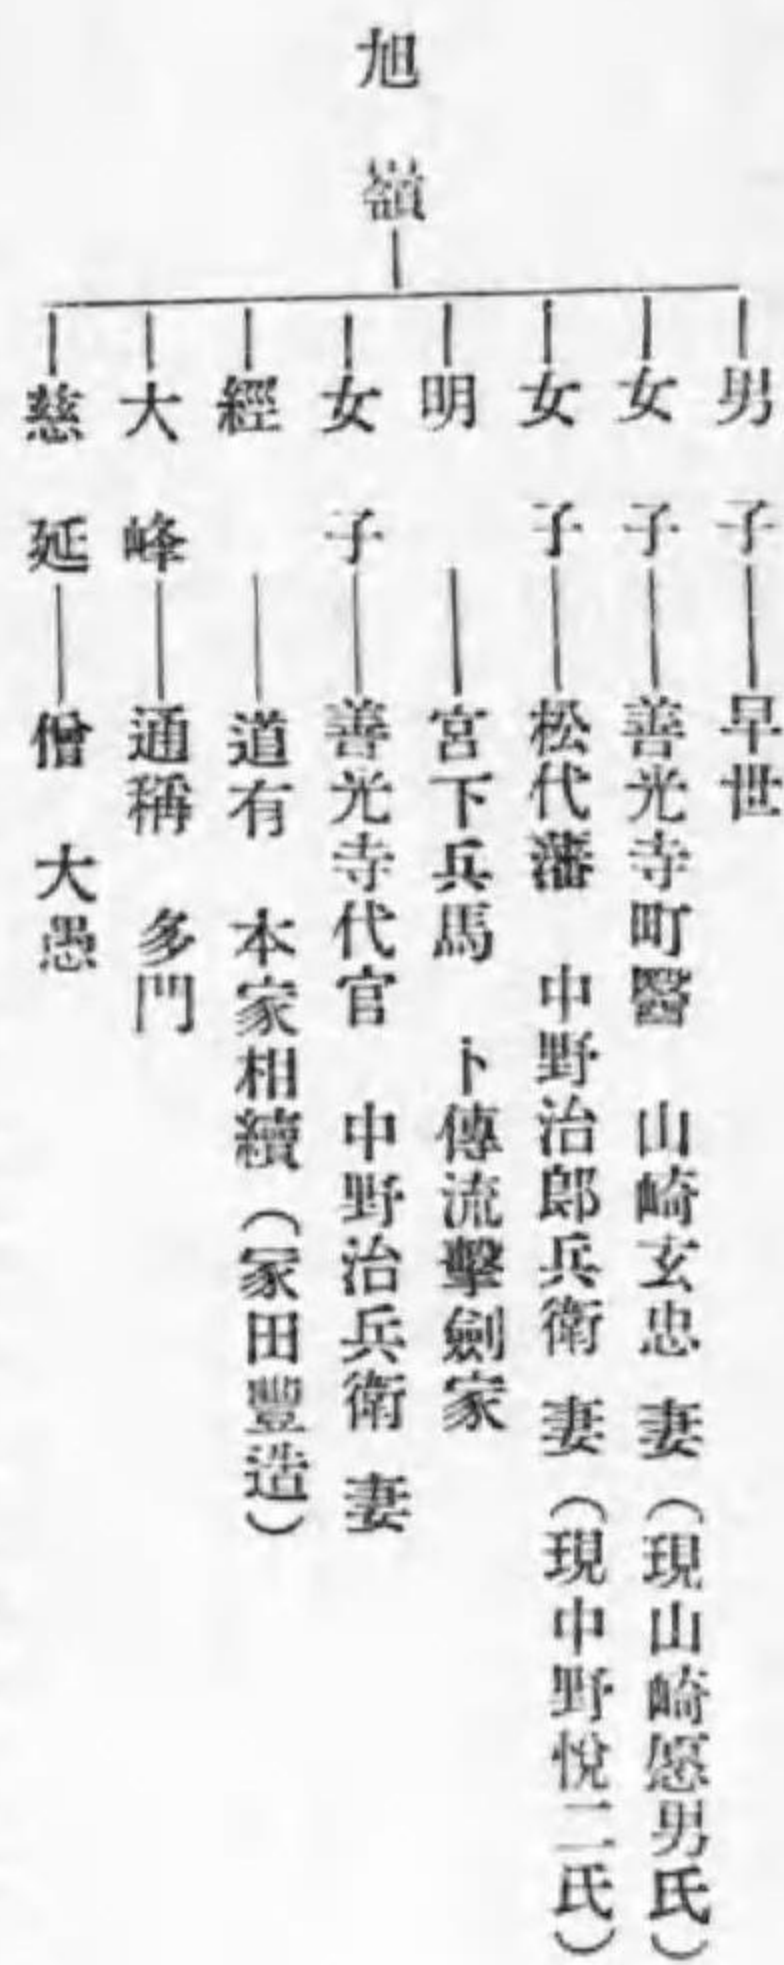 旭嶺
男子 早世
女子 善光寺町醫 山崎玄忠 妻(現山崎愿男氏)
女子 松代藩 中野治郎兵衛 妻(現中野悅二氏)
明 宮下兵馬 卜傳流擊劍家
女子 善光寺代官 中野治兵衛 妻
經 道有 本家相續(冢田豐造)
大峰 通稱 多門
慈延 僧 大愚